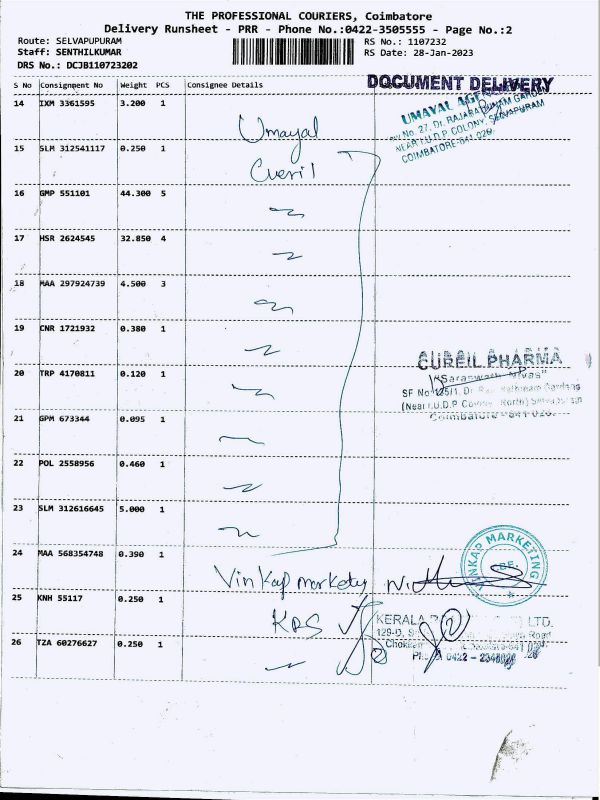 THE PROFESSIONAL COURIERS, Coimbatore
Delivery Runsheet - PRR - Phone No.:0422-3505555 - Page No.:2
Route: SELVAPUPURAM RS No.: 1107232
Staff: SENTHILKUMAR RS Date: 28-Jan-2023
DRS No.: DCJB110723202
S No Consignment No Weight PCS Consignee Details DOCUMENT DELIVERY
14 IXM 3361595 3.200 1 Umayal
UMAYAL
No. 27, Dr. GARDEN
NEAR I.U.D.P COLONY, SELVAPURAM
COIMBATORE-641 026.
15 SLM 312541117 0.250 1 Cureil
16 GMP 551101 44.300 5
17 HSR 2624545 32.850 4
18 MAA 297924739 4.500 3
19 CNR 1721932 0.380 1
CUREIL PHARMA
20 TRP 4170811 0.120 1
SF No 125/1, Dr. Gardens
(Near I.U.D.P North)
Coimbatore - 641 026.
21 GPM 673344 0.095 1
22 POL 2558956 0.460 1
23 SLM 312616645 5.000 1
24 MAA 568354748 0.390 1 Vinkap markety
VINKAP MARKETING
25 KNH 55117 0.250 1 KRS
KERALA LTD.
129-D, Road
26 TZA 60276627 0.250 1
0422 -